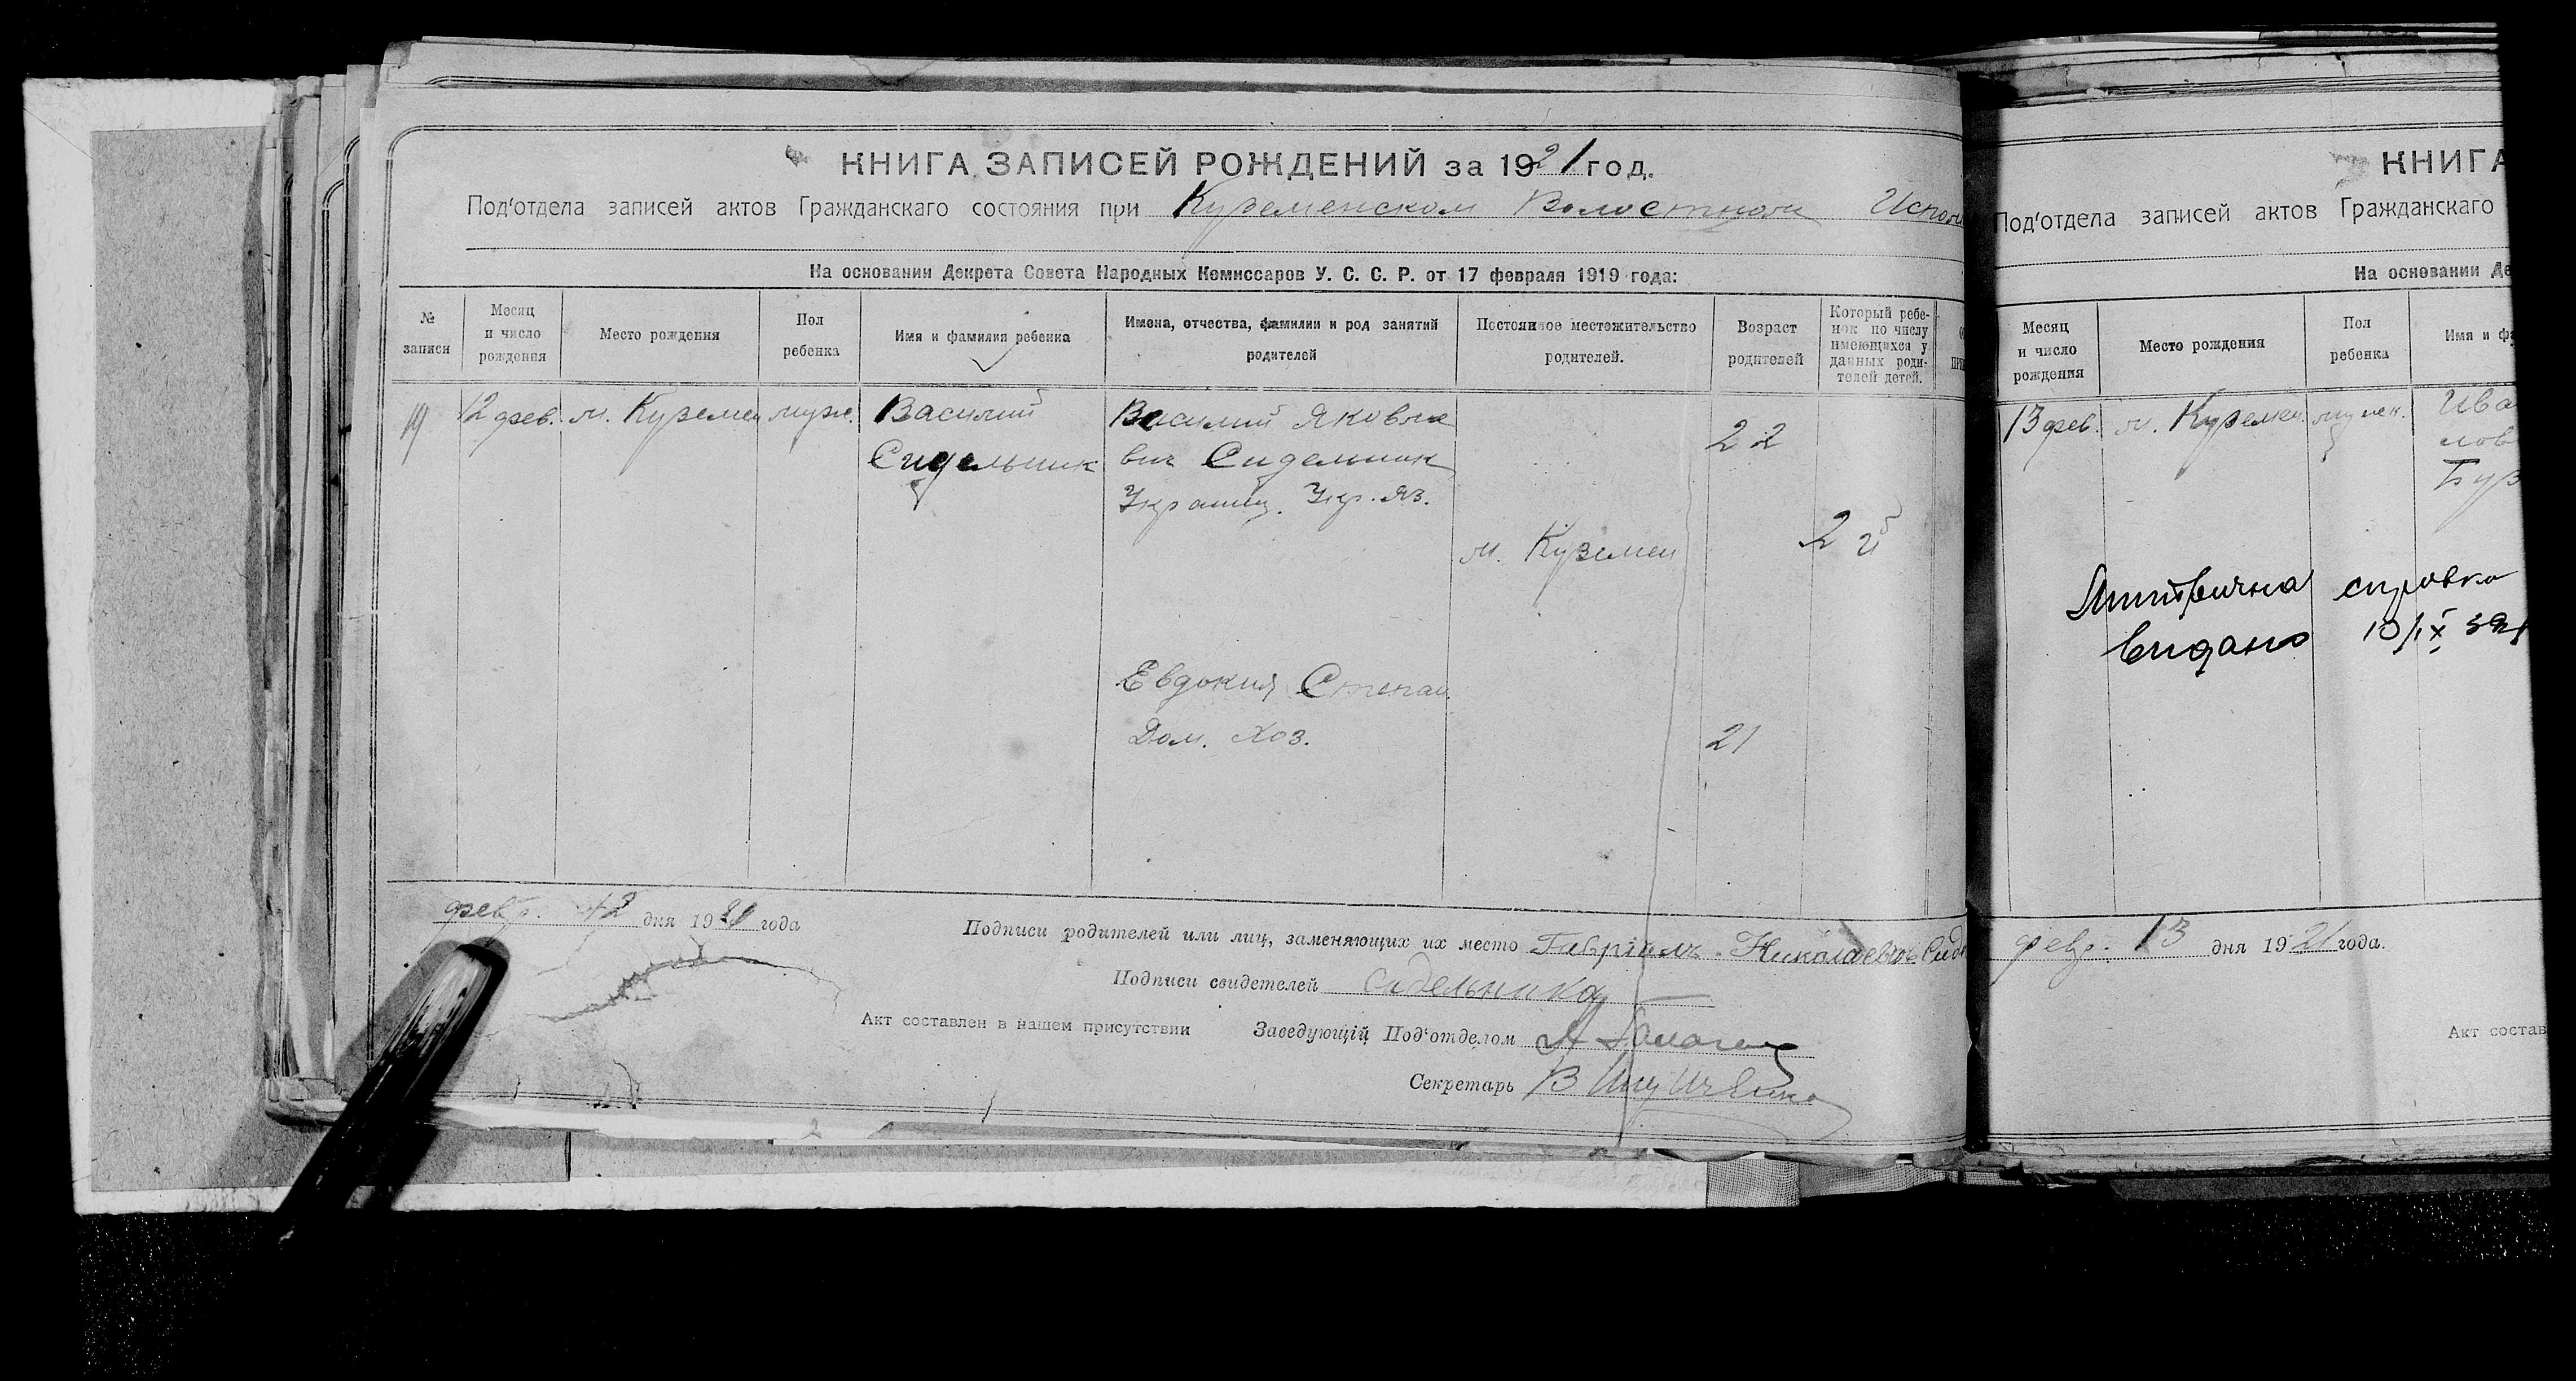 КНИГА ЗАПИСЕЙ РОЖДЕНИЙ за 1921 год.
Под'отдела записей актов Гражданскаго состояния при Куземенском Волостном Испол
На основании Декрета Совета Народных Комиссаров У. С. С. Р. от 17 февраля 1919 года:
№ записи
Месяц и число рождения
Место рождения
Пол ребенка
Имя и фамилия ребенка
Имена, отчества, фамилии и род занятий родителей
Постоянное местожительство родителей.
Возраст родителей
Который ребенок по числу имеющихся у данных родителей детей.
19 12 фев. м. Куземен муж. Василий
Сидельник
Василий Яковле
вич Сидельник
Украинц. Укр. яз.
22
м. Куземен
2й
Евдокия Степан.
Дом. Хоз.
21
февр. 12 дня 1921 года
Подписи родителей или лиц, заменяющих их место Гавриилъ Николаевичъ Сид
Подписи свидетелей Сидельника
Акт составлен в нашем присутствии
Заведующій Под'отделом А
Секретарь В
КНИГА
Под'отдела записей актов Гражданскаго
На основании Де
Месяц и число рождения
Место рождения
Пол ребенка
Имя и фа
13 фев. м. Куземен. мужск. Ива
лов
Буз
справка
видано 10/IX
февр. 13 дня 1921 года.
Акт состав